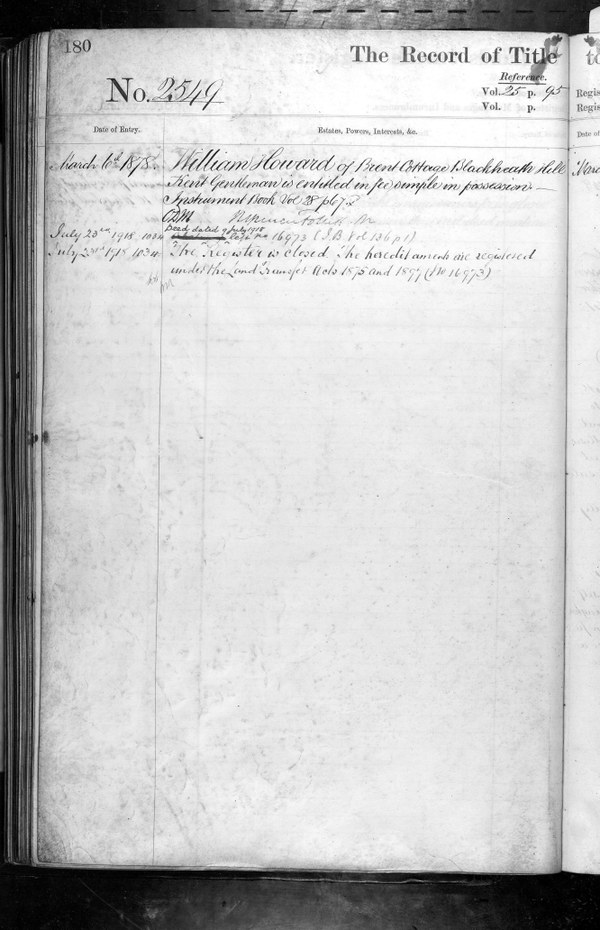 180
The Record of Title
Reference.
No. 2549
Vol. 25 p. 95
Vol. p.
Date of Entry.
Estates, Powers, Interests, &c.
March 6th 1878.
William Howard of Brent Cottage Blackheath Hill
Kent Gentleman is entitled in fee simple in possession
Instrument Book Vol 28 p 67
Deed dated 9 July 1918
July 23rd 1918 1034 16973 (I.B. Vol 136 p 1)
July 23rd 1918 1034 The Register is closed The hereditaments are registered
under the Land Transfer Acts 1875 and 1897 (No 16973)
to
Regis
Regis
Date of